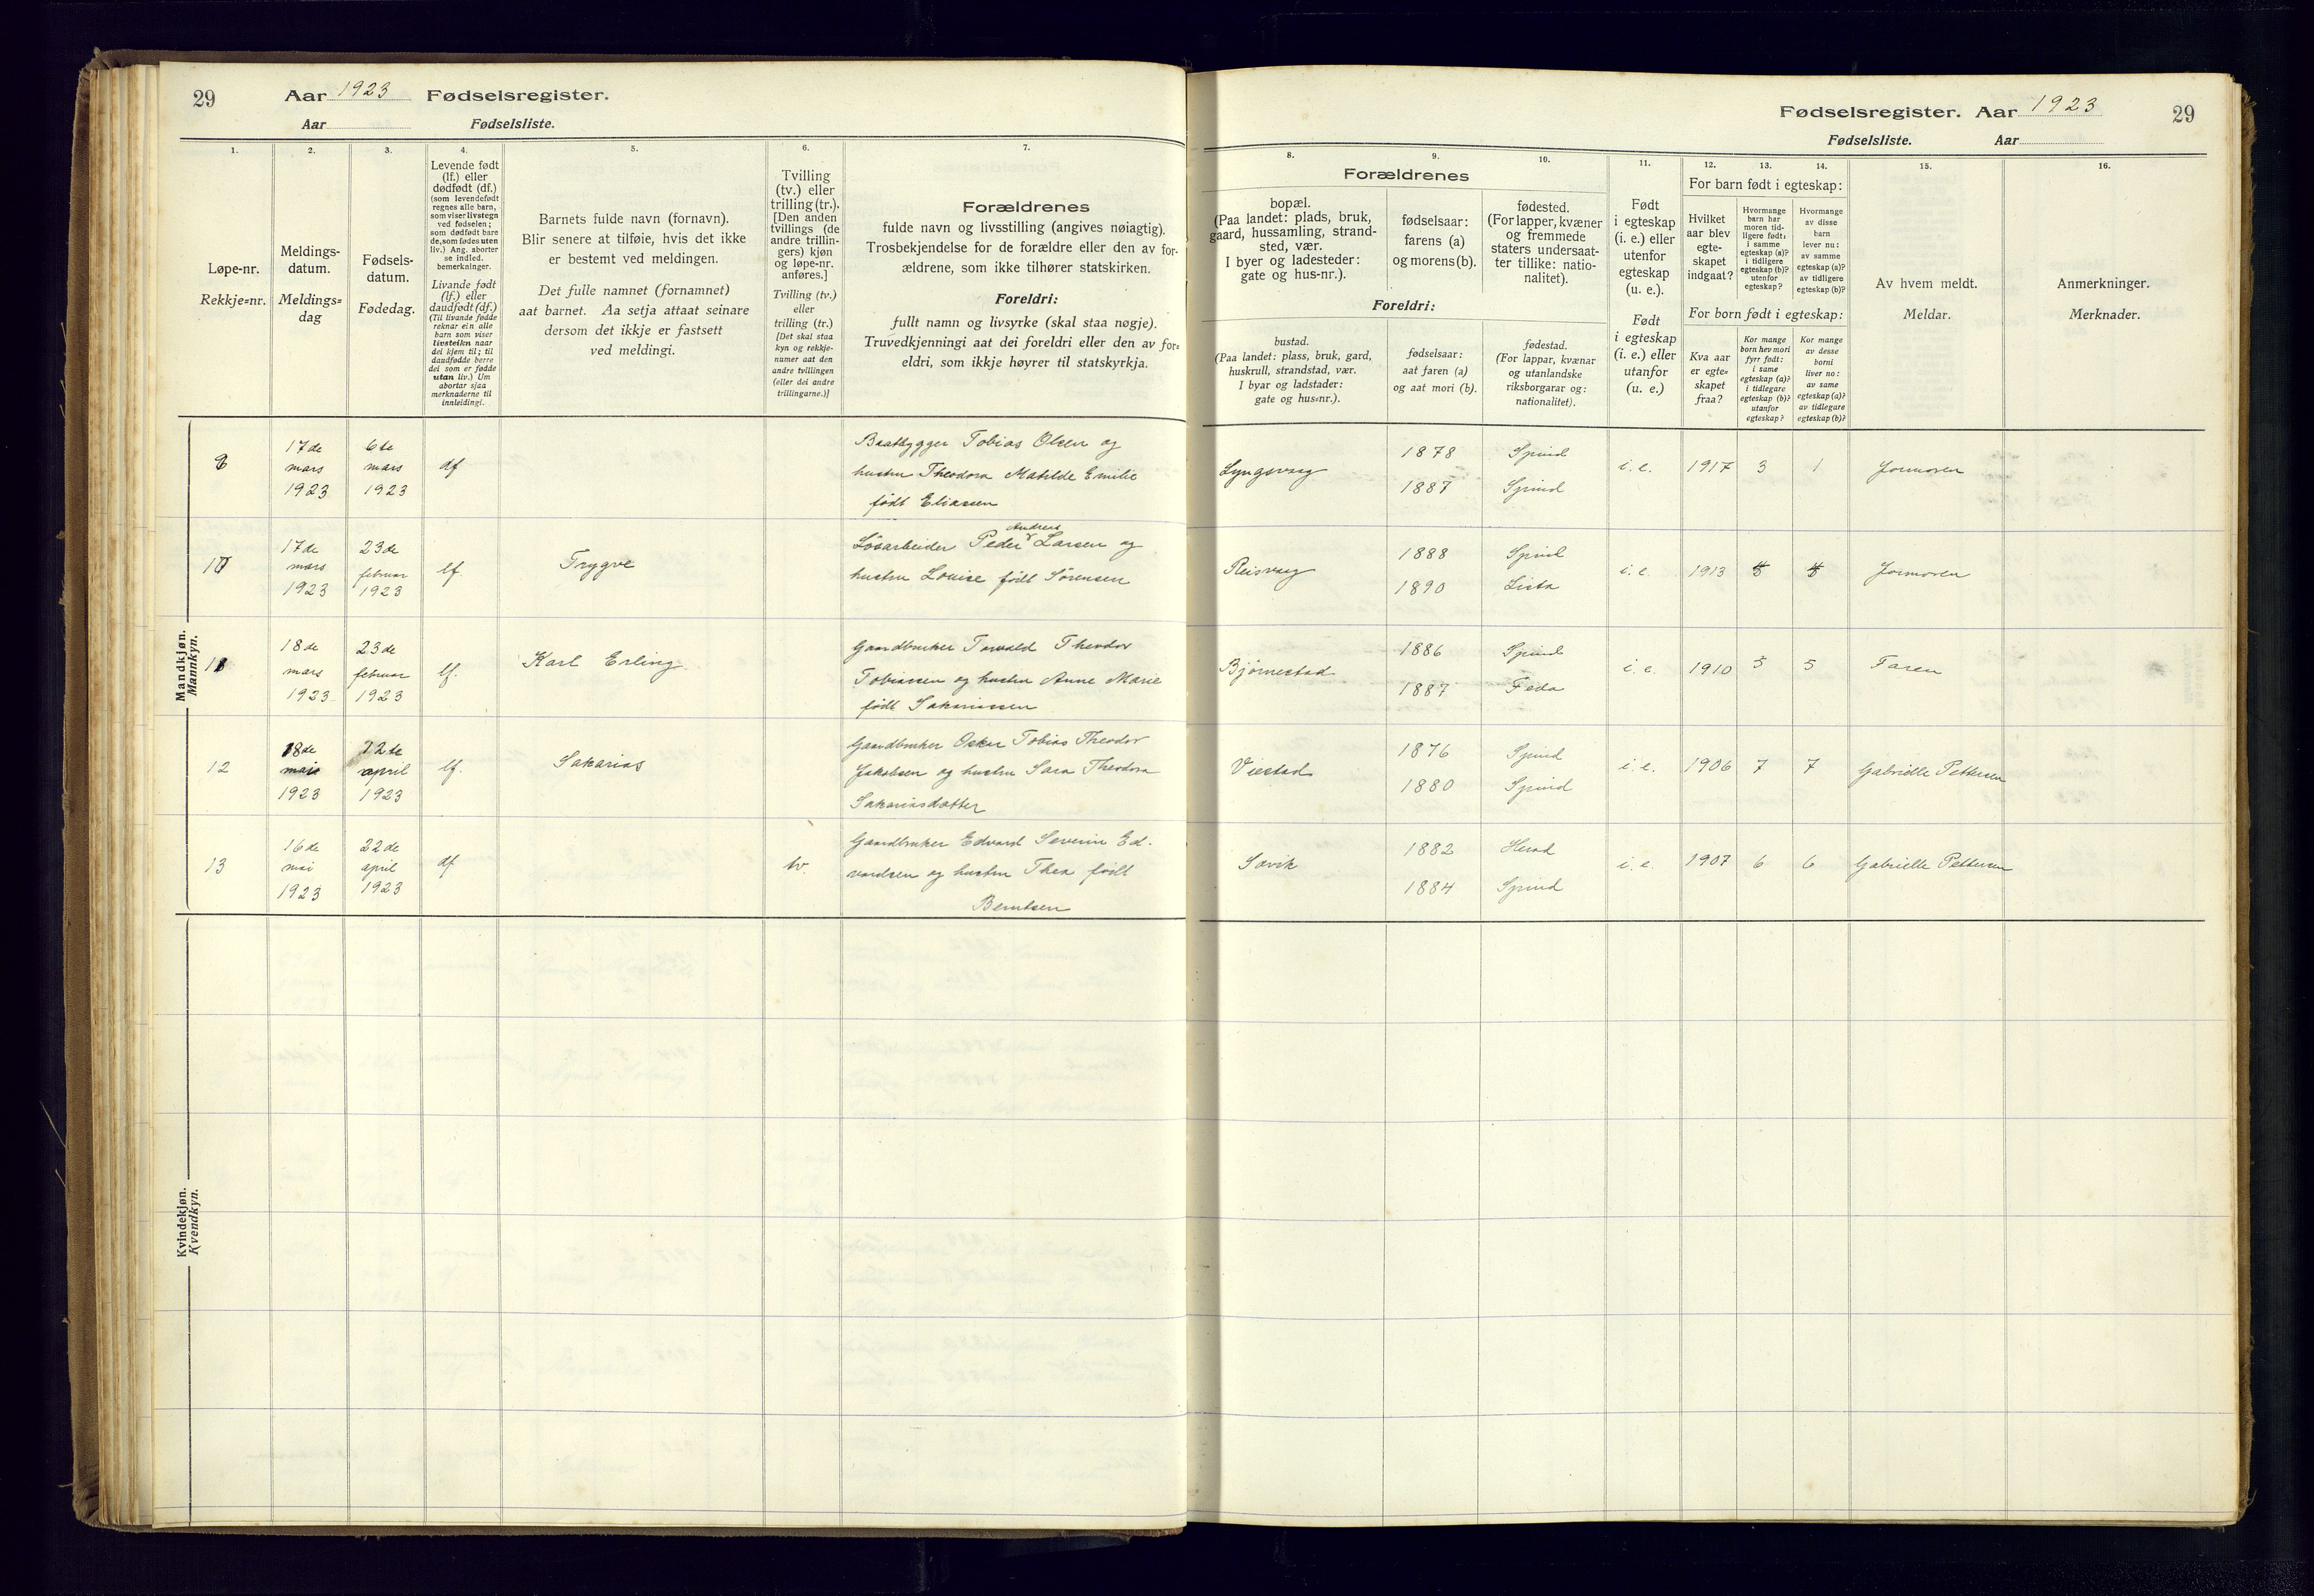 29
Aar 1923 Fødselsregister.
Aar Fødselsliste.
1.
Løpe-nr.
Rekkje=nr.
2.
Meldings-
datum.
Meldings=
dag
3.
Fødsels-
datum.
Fødedag.
4.
Levende født
(lf.) eller
dødfødt (df.)
(som levendefødt
regnes alle barn,
som viser livstegn
ved fødselen;
som dødfødt bare
de, som fødes uten
liv.) Ang. aborter
se indled.
bemerkninger.
Livande født
(lf.) eller
daudfødt (df.)
(Til livande fødde
reknar ein alle
barn som viser
livsteikn naar
dei kjem til; til
daudfødde berre
dei som er fødde
utan liv.) Um
abortar sjaa
merknaderne til
innleidingi.
5.
Barnets fulde navn (fornavn).
Blir senere at tilføie, hvis det ikke
er bestemt ved meldingen.
Det fulle namnet (fornamnet)
aat barnet. Aa setja attaat seinare
dersom det ikkje er fastsett
ved meldingi.
6.
Tvilling
(tv.) eller
trilling (tr.).
[Den anden
tvillings (de
andre trillin-
gers) kjøn
og løpe-nr.
anføres.]
Tvilling (tv.)
eller
trilling (tr.)
[Det skal staa
kyn og rekkje-
numer aat den
andre tvillingen
(eller dei andre
trillingarne.)]
7.
Forældrenes
fulde navn og livsstilling (angives nøiagtig).
Trosbekjendelse for de forældre eller den av for-
ældrene, som ikke tilhører statskirken.
Foreldri:
fullt namn og livsyrke (skal staa nøgje).
Truvedkjenningi aat dei foreldri eller den av for=
eldri, som ikkje høyrer til statskyrkja.
Mandkjøn.
Mannkyn.
17de
mars
1923
6te
mars
1923
df
Baatbygger Tobias Olsen og
hustru Theodora Matilde Emilie
født Eliassen
10
17de
mars
1923
23de
februar
1923
lf.
Trygve
Andreas
Løsarbeider Peder Larsen og
hustru Louise født Sørensen
11
18de
mars
1923
23de
februar
1923
lf.
Karl Erling
Gaardbruker Torvald Theodor
Tobiassen og hustru Anne Marie
født Sakariassen
12
18de
mai
1923
april
1923
lf.
Sakarias
Gaardbruker Oskar Tobias Theodor
Jakobsen og hustru Sara Theodora
Sakariasdatter
13
16de
mai
1923
22de
april
1923
df
tv.
Gaardbruker Edvard Severin Ed-
vardsen og hustru Thea født
Berntsen
Kvindekjøn.
Kvendkyn.
Fødselsregister. Aar 1923
29
Fødselsliste. Aar
Forældrenes
8.
bopæl.
(Paa landet: plads, bruk,
gaard, hussamling, strand-
sted, vær.
I byer og ladesteder:
gate og hus-nr.).
9.
fødselsaar:
farens (a)
og morens (b).
10.
fødested.
(For lapper, kvæner
og fremmede
staters undersaat-
ter tillike: natio-
nalitet).
Foreldri:
bustad.
(Paa landet: plass, bruk, gard,
huskrull, strandstad, vær.
I byar og ladstader:
gate og hus=nr.).
fødselsaar:
aat faren (a)
og aat mori (b).
fødestad.
(For lappar, kvænar
og utanlandske
riksborgarar og:
nationalitet).
11.
Født
i egteskap
(i. e.) eller
utenfor
egteskap
(u. e.).
Født
i egteskap
(i. e.) eller
utanfor
(u. e.)
12. 13. 14.
For barn født i egteskap:
Hvilket
aar blev
egte-
skapet
indgaat?
Hvormange
barn har
moren tid-
ligere født:
i samme
egteskap (a)?
i tidligere
egteskap (b)?
utenfor
egteskap?
Hvormange
av disse
barn
lever nu:
av samme
egteskap (a)?
av tidligere
egteskap (b)?
For born født i egteskap:
Kva aar
er egte=
skapet
fraa?
Kor mange
born hev mori
fyrr født:
i same
egteskap (a)?
i tidlegare
egteskap (b)?
utanfor
egteskap?
Kor mange
av desse
borni
liver no:
av same
egteskap (a)?
av tidlegare
egteskap (b)?
15.
Av hvem meldt.
Meldar.
16.
Anmerkninger.
Merknader.
Lyngsvaag
1878
1887
Spind
Spind
i. e. 1917 3 1 Jormoren
Reisvaag
1888
1890
Spind
Lista
i. e. 1913 Jormoren
Bjørnestad
1886
1887
Spind
Feda
i. e. 1910 5 5 Faren
Viestad
1876
1880
Spind
Spind
i. e. 1906 7 7 Gabrielle Pettersen
Sævik
1882
1884
Herad
Spind
i. e. 1907 6 6 Gabrielle Pettersen